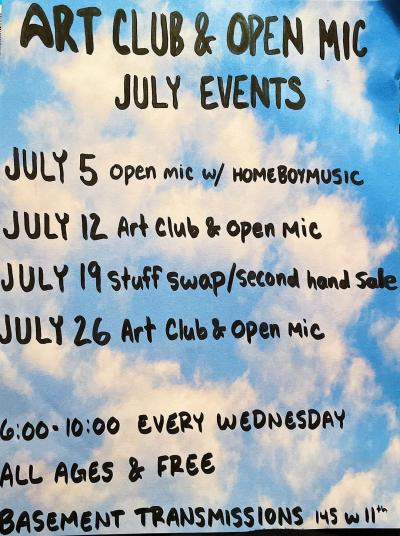 ART CLUB & OPEN MIC
JULY EVENTS
JULY 5 open mic w/ HOMEBOYMUSIC
JULY 12 Art Club & open mic
JULY 19 stuff swap/second hand sale
JULY 26 Art Club & Open Mic
6:00-10:00 EVERY WEDNESDAY
ALL AGES & FREE
BASEMENT TRANSMISSIONS 145 W 11th